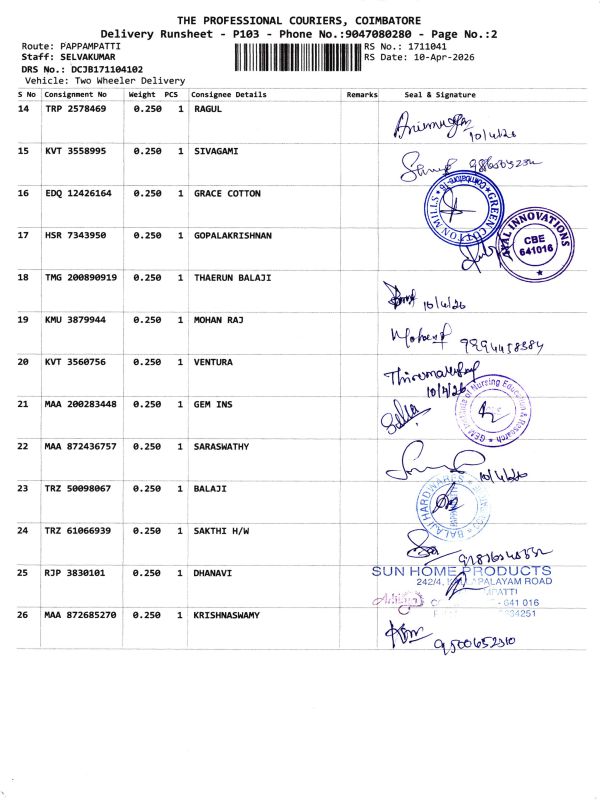 THE PROFESSIONAL COURIERS, COIMBATORE
Delivery Runsheet - P103 - Phone No.:9047080280 - Page No.:2
Route: PAPPAMPATTI RS No.: 1711041
Staff: SELVAKUMAR RS Date: 10-Apr-2026
DRS No.: DCJB171104102
Vehicle: Two Wheeler Delivery
S No Consignment No Weight PCS Consignee Details Remarks Seal & Signature
14 TRP 2578469 0.250 1 RAGUL
10/4/26
15 KVT 3558995 0.250 1 SIVAGAMI
16 EDQ 12426164 0.250 1 GRACE COTTON
GREEN COTTON MILLS * Coimbatore-16 *
17 HSR 7343950 0.250 1 GOPALAKRISHNAN
INNOVATIONS
CBE
641016
18 TMG 200890919 0.250 1 THAERUN BALAJI
10/4/26
19 KMU 3879944 0.250 1 MOHAN RAJ
9994458384
20 KVT 3560756 0.250 1 VENTURA
10/4/26
21 MAA 200283448 0.250 1 GEM INS
GEM Institute of Nursing Education & Research
22 MAA 872436757 0.250 1 SARASWATHY
10/4/26
23 TRZ 50098067 0.250 1 BALAJI
BALAJI HARDWARES
24 TRZ 61066939 0.250 1 SAKTHI H/W
25 RJP 3830101 0.250 1 DHANAVI
SUN HOME PRODUCTS
242/4, PALAYAM ROAD
- 641 016
26 MAA 872685270 0.250 1 KRISHNASWAMY
9500652010